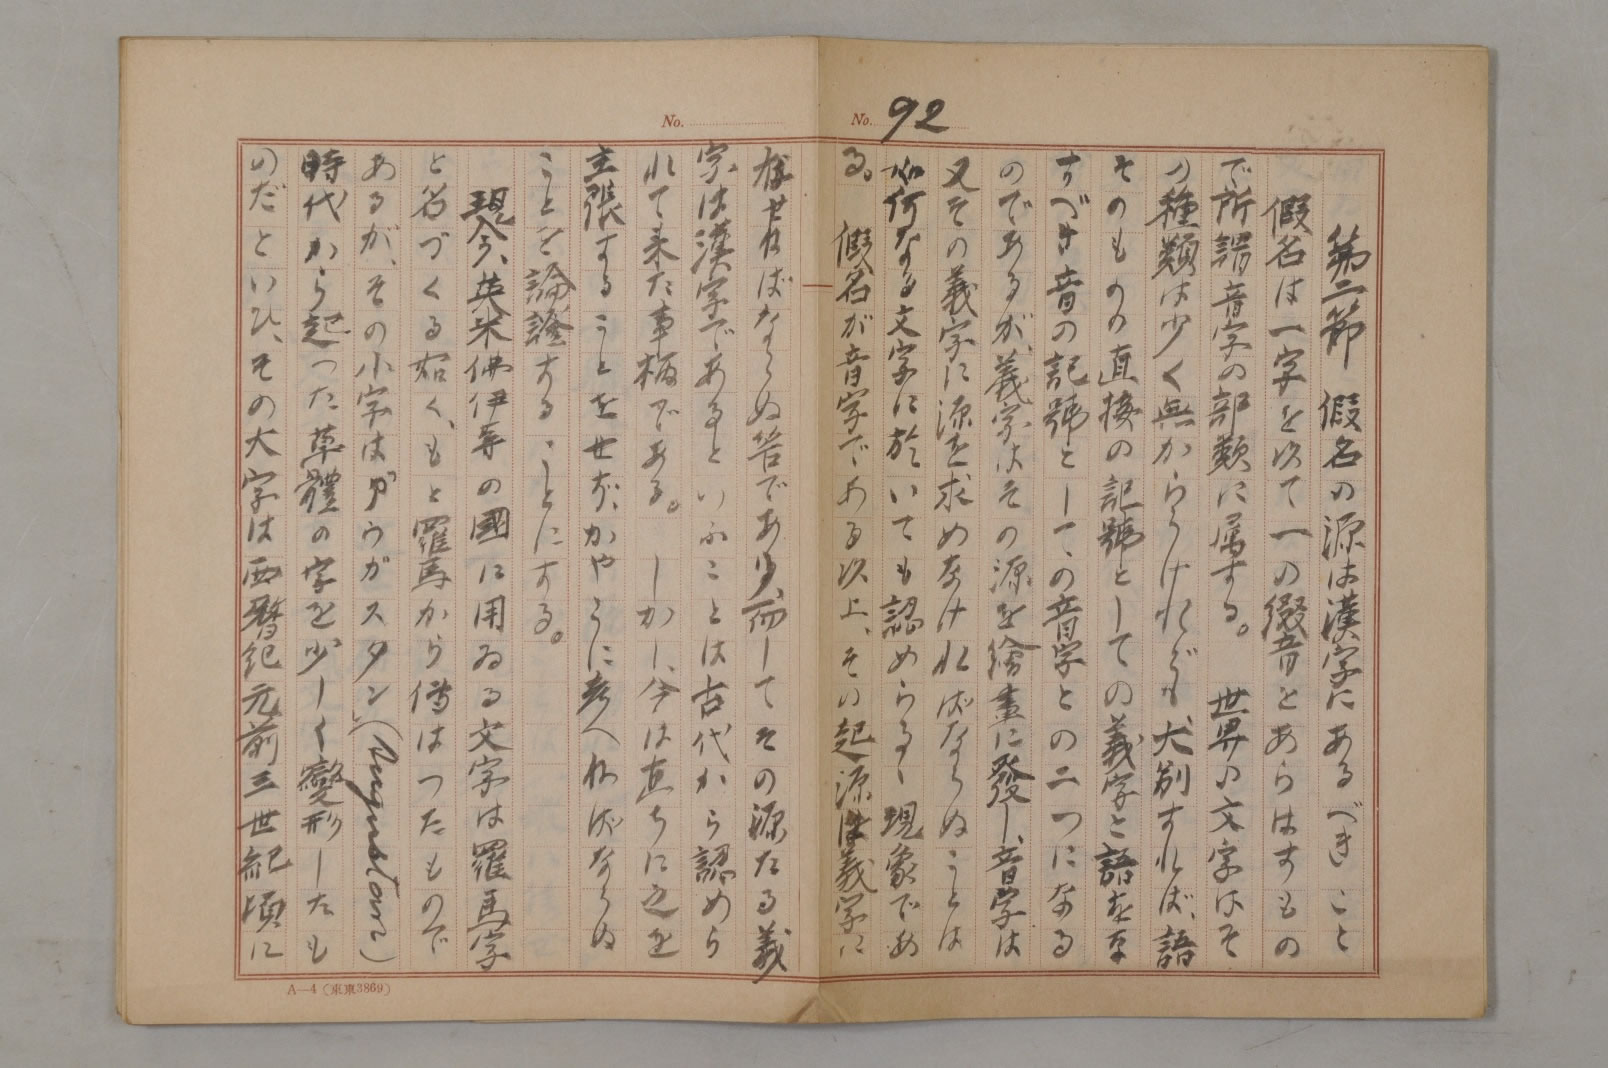 No. 92
第二節　假名の源は漢字にあるべきこと
假名は一字を以て一の綴音とあらはすもの
で所謂音字の部類に属する。世界の文字はそ
の種類は少く無からうけれども大別すれば、語
そのものの直接の記號としての義字と語を写
すべき音の記號としての音字との二つになる
のであるが、義字はその源を繪畫に發し、音字は
又その義字に源を求めなければならぬことは
如何なる文字に於いても認めらるゝ現象であ
る。假名が音字である以上、その起源は義字に
No.
存せねばならぬ筈であり、而してその源たる義
字は漢字であるといふことは古代から認めら
れて来た事柄である。しかし、今は直ちに之を
主張することをせず、かやうに考へねばならぬ
ことを論證するゝことにする。
現今、英米佛伊等の國に用ゐる文字は羅馬字
と名づくる如く、もと羅馬から傳はつたもので
あるが、その小字はアウガスタン(Augustan)
時代から起つた草體の字を少しく變形したも
のだといひ、その大字は西暦紀元前三世紀頃に
A—4（東東3869）